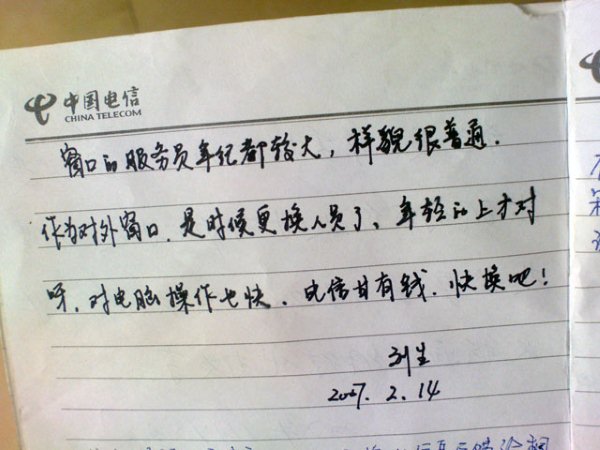 中国电信
CHINA TELECOM
窗口的服务员年纪都较大，样貌很普通.
作为对外窗口，是时候更换人员了、年轻的上才对
呀，对电脑操作也快．电信甘有钱．快换吧！
刘生
2007. 2. 14